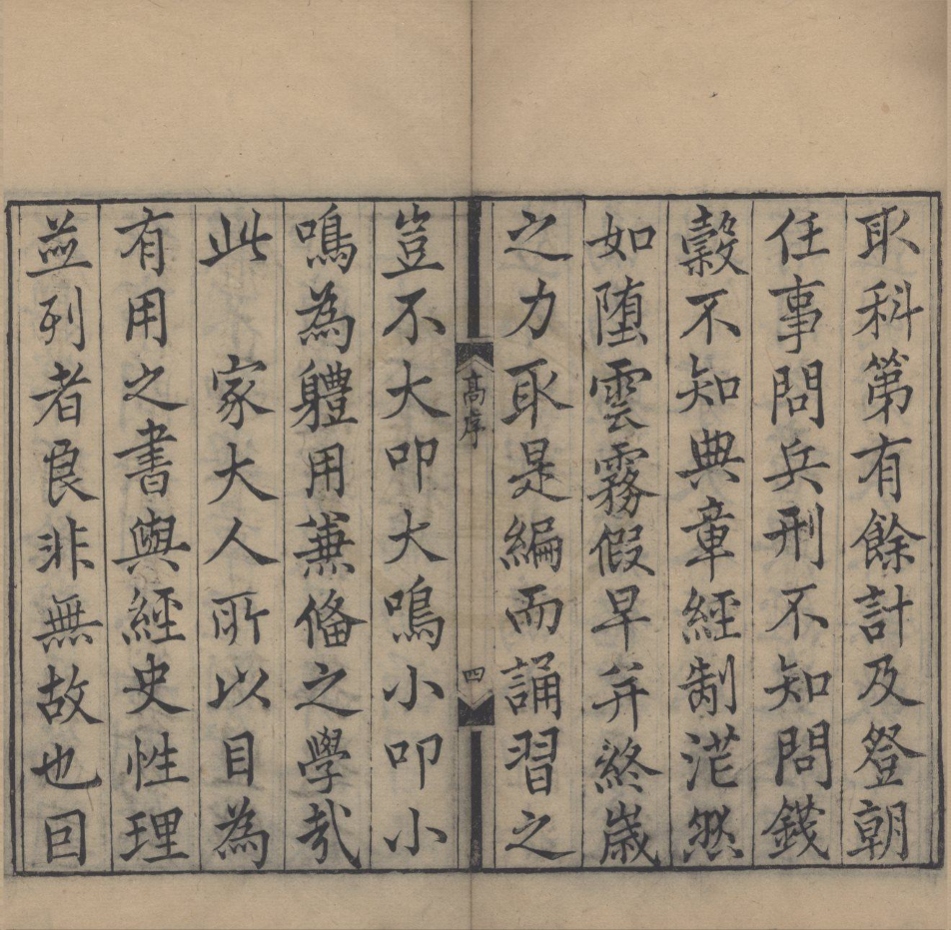 取科第有餘計及登朝
任事問兵刑不知問錢
穀不知典章經制茫然
如墮雲霧假早年終歲
之力取是編而誦習之
高序
四
豈不大叩大鳴小叩小
鳴為體用兼備之學哉
此 家大人所以目為
有用之書與經史性理
並列者良非無故也回